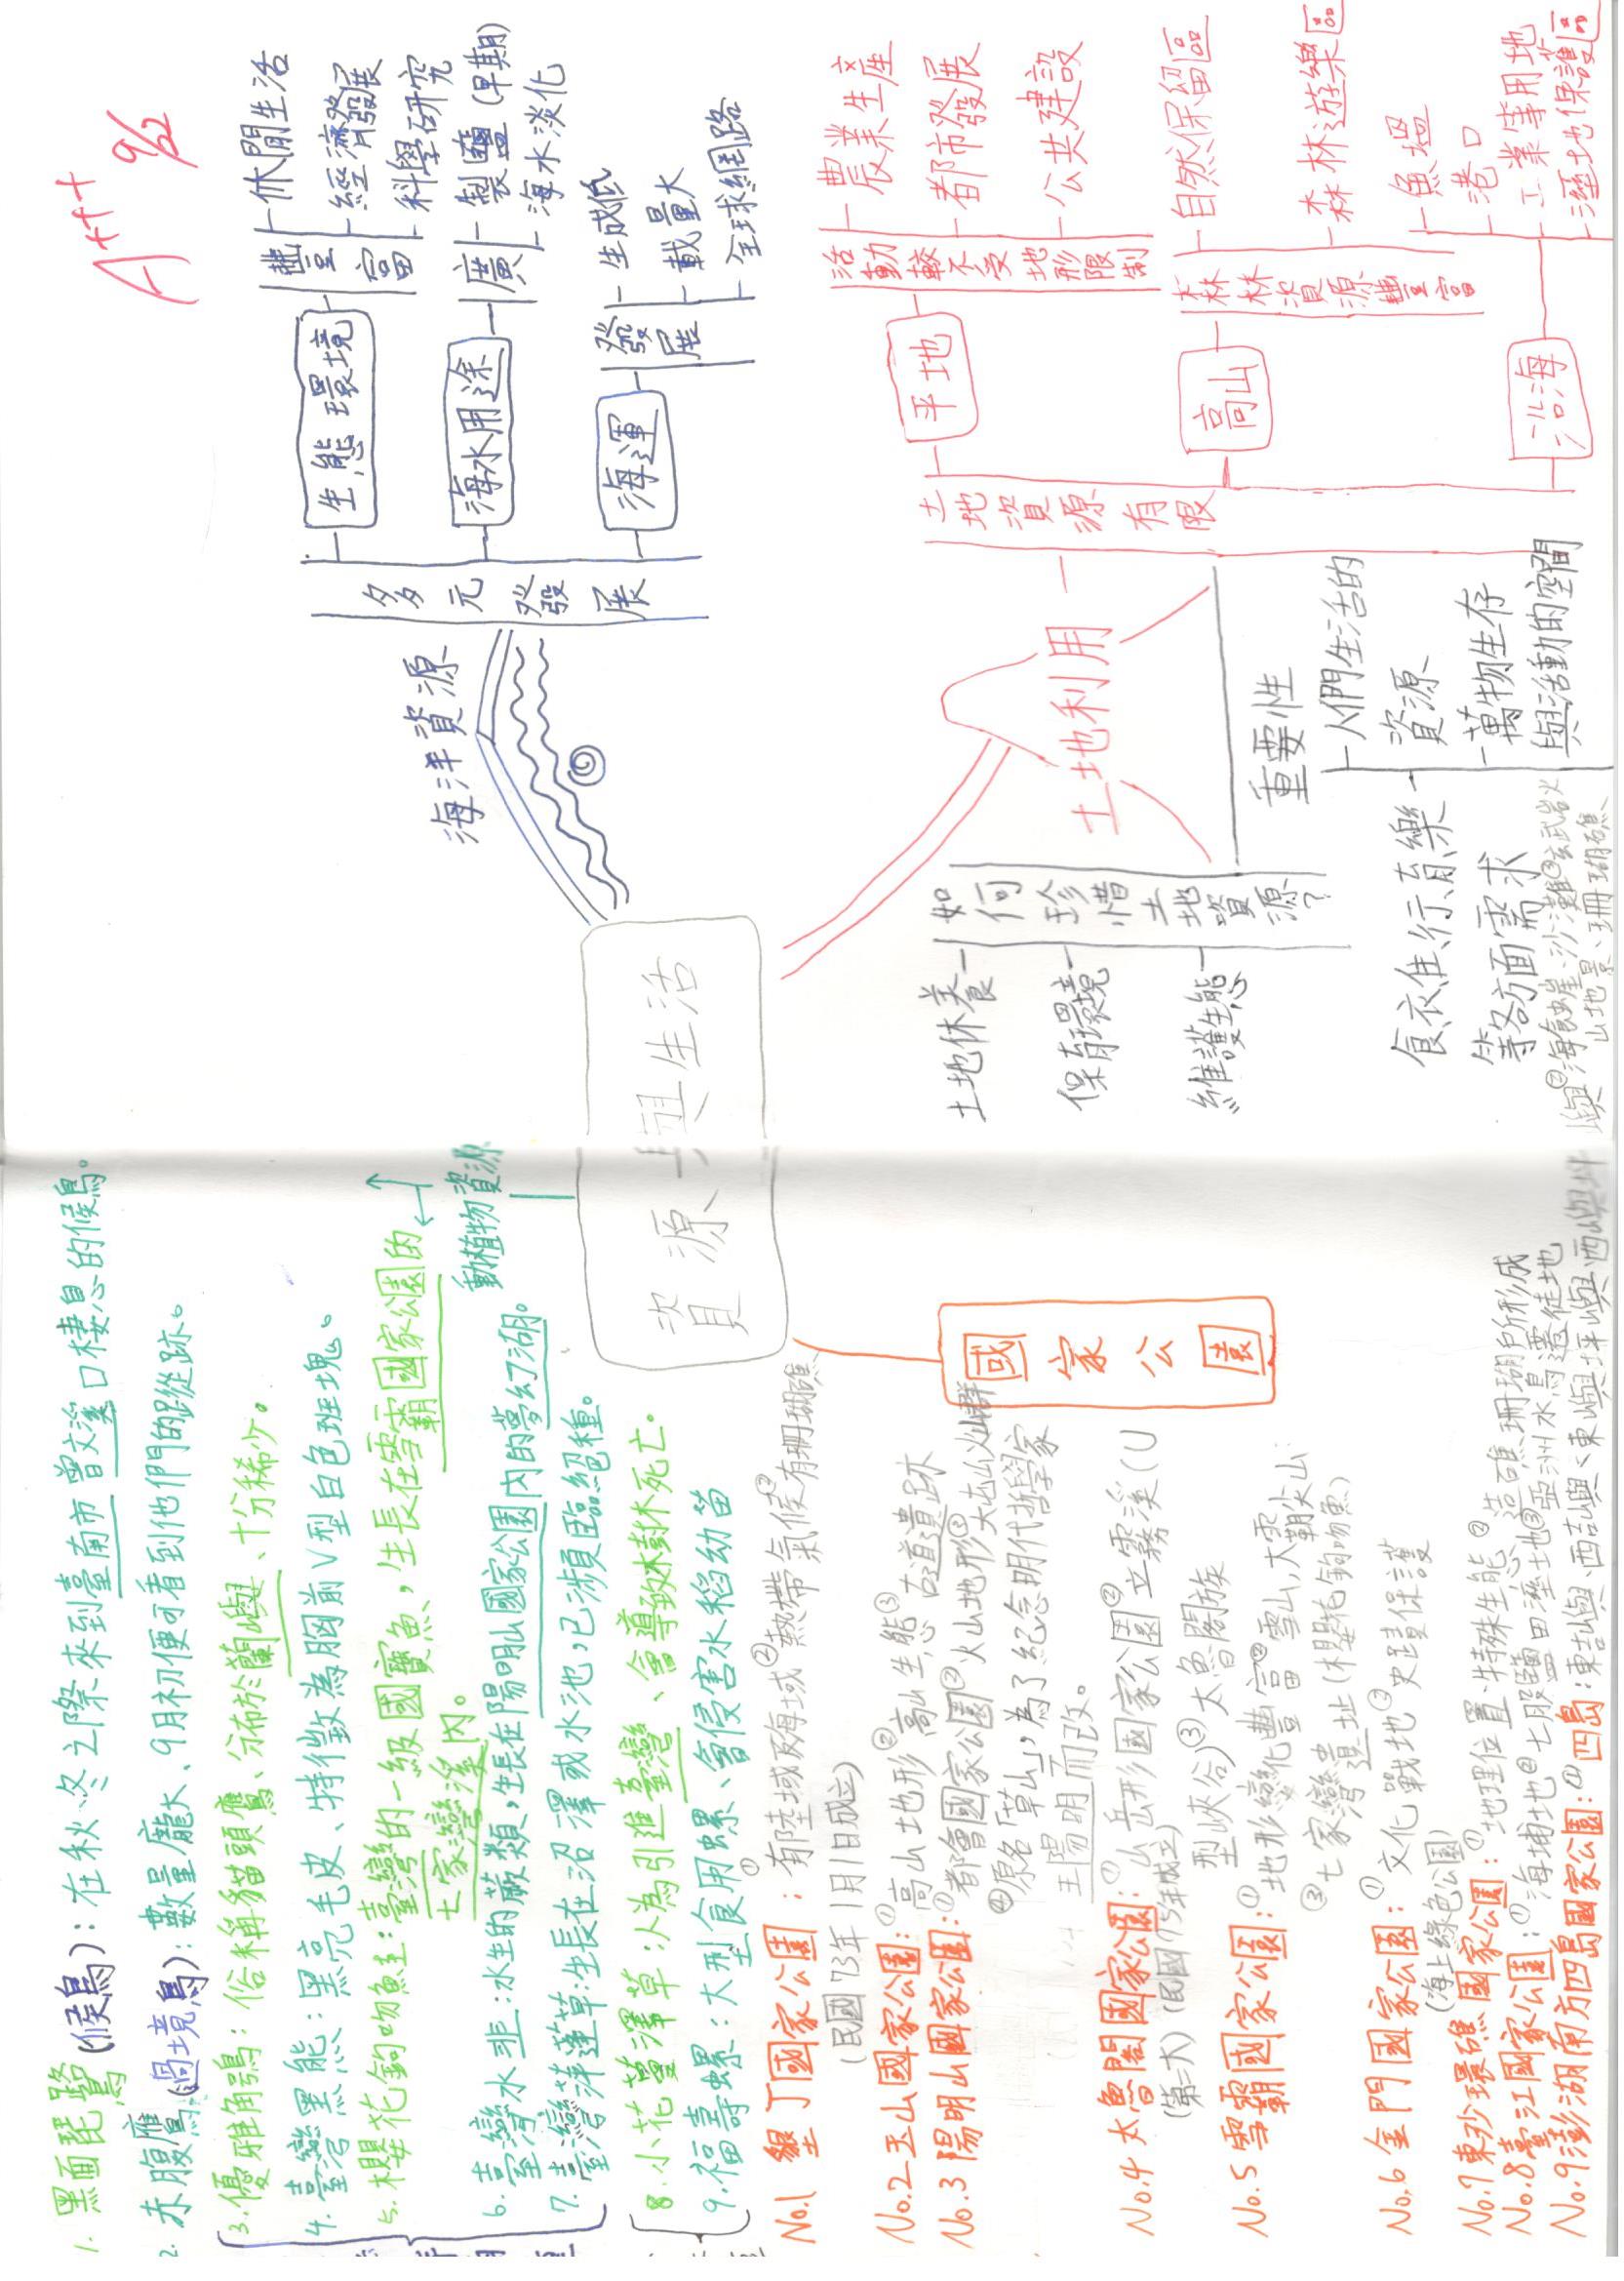 1. 黑面琵鷺(候鳥):在秋冬之際來到臺南市曾文溪口棲息的候鳥。
2. 赤腹鷹(過境鳥):數量龐大、9月初便可看到他們的蹤跡。
3. 優雅角鴞:俗稱貓頭鷹、分布於蘭嶼、十分稀少。
4. 臺灣黑熊:黑亮毛皮、特徵為胸前V型白色班塊。
5. 櫻花鉤吻鮭:臺灣的一級國寶魚,生長在雪霸國家公園的
七家灣溪內。
6. 臺灣水韭:水生的蕨類,生長在陽明山國家公園內的夢幻湖。
7. 臺灣萍蓬草:生長在沼澤或水池,已瀕臨絕種。
8. 小花蔓澤草:人為引進臺灣、會導致林樹木死亡。
9. 福壽螺:大型食用螺、會侵害水稻幼苗
動植物資源
資源與生活
國家公園
No.1 墾丁國家公園:①有陸域及海域②熱帶氣候②有珊瑚礁
(民國73年1月1日成立)
No.2 玉山國家公園:①高山地形②高山生態③古道遺跡
No.3 陽明山國家公園:①都會國家公園②火山地形③大屯火山群
④原名「草山」,為了紀念明代哲學家
王陽明而改。
No.4 太魯閣國家公園:①山岳形國家公園②立霧溪(U
(第二大)(民國75年成立)型峽谷)③太魯閣族
No.5 雪霸國家公園:①地形變化豐富②雪山,大霸尖山
③七家灣遺址(櫻花鉤吻魚)
No.6 金門國家公園:①文化戰地②史蹟保護
(海上綠色公園)
No.7 東沙環礁國家公園:①地理位置特殊生態②造礁珊瑚所形成
No.8 臺江國家公園:①海埔地②七股鹽田溼土地③亞洲水鳥遷徒地
No.9 澎湖南方四島國家公園:①四島:東吉嶼、西吉嶼、東嶼坪嶼與西嶼坪
嶼②海蝕崖、沙灘③玄武岩火
山地景、珊瑚礁
A+++ 9/2
海洋資源
多元發展
生態環境
豐富
休閒生活
經濟發展
科學研究
海水用途
廣
製鹽(早期)
海水淡化
海運
發展
生成低
載量大
全球網路
土地利用
土地資源有限
平地
活動較不受地形限制
農業生產
都市發展
公共建設
高山
森林資源豐富
自然保留區
森林遊樂區
沿海
魚塭
港口
工業等用地
溼土地保護區
如何珍惜土地資源?
土地休養
保育環境
維護生態
重要性
人們生活的
資源
食衣住行育樂
等各方面需求
萬物生存
與活動的空間